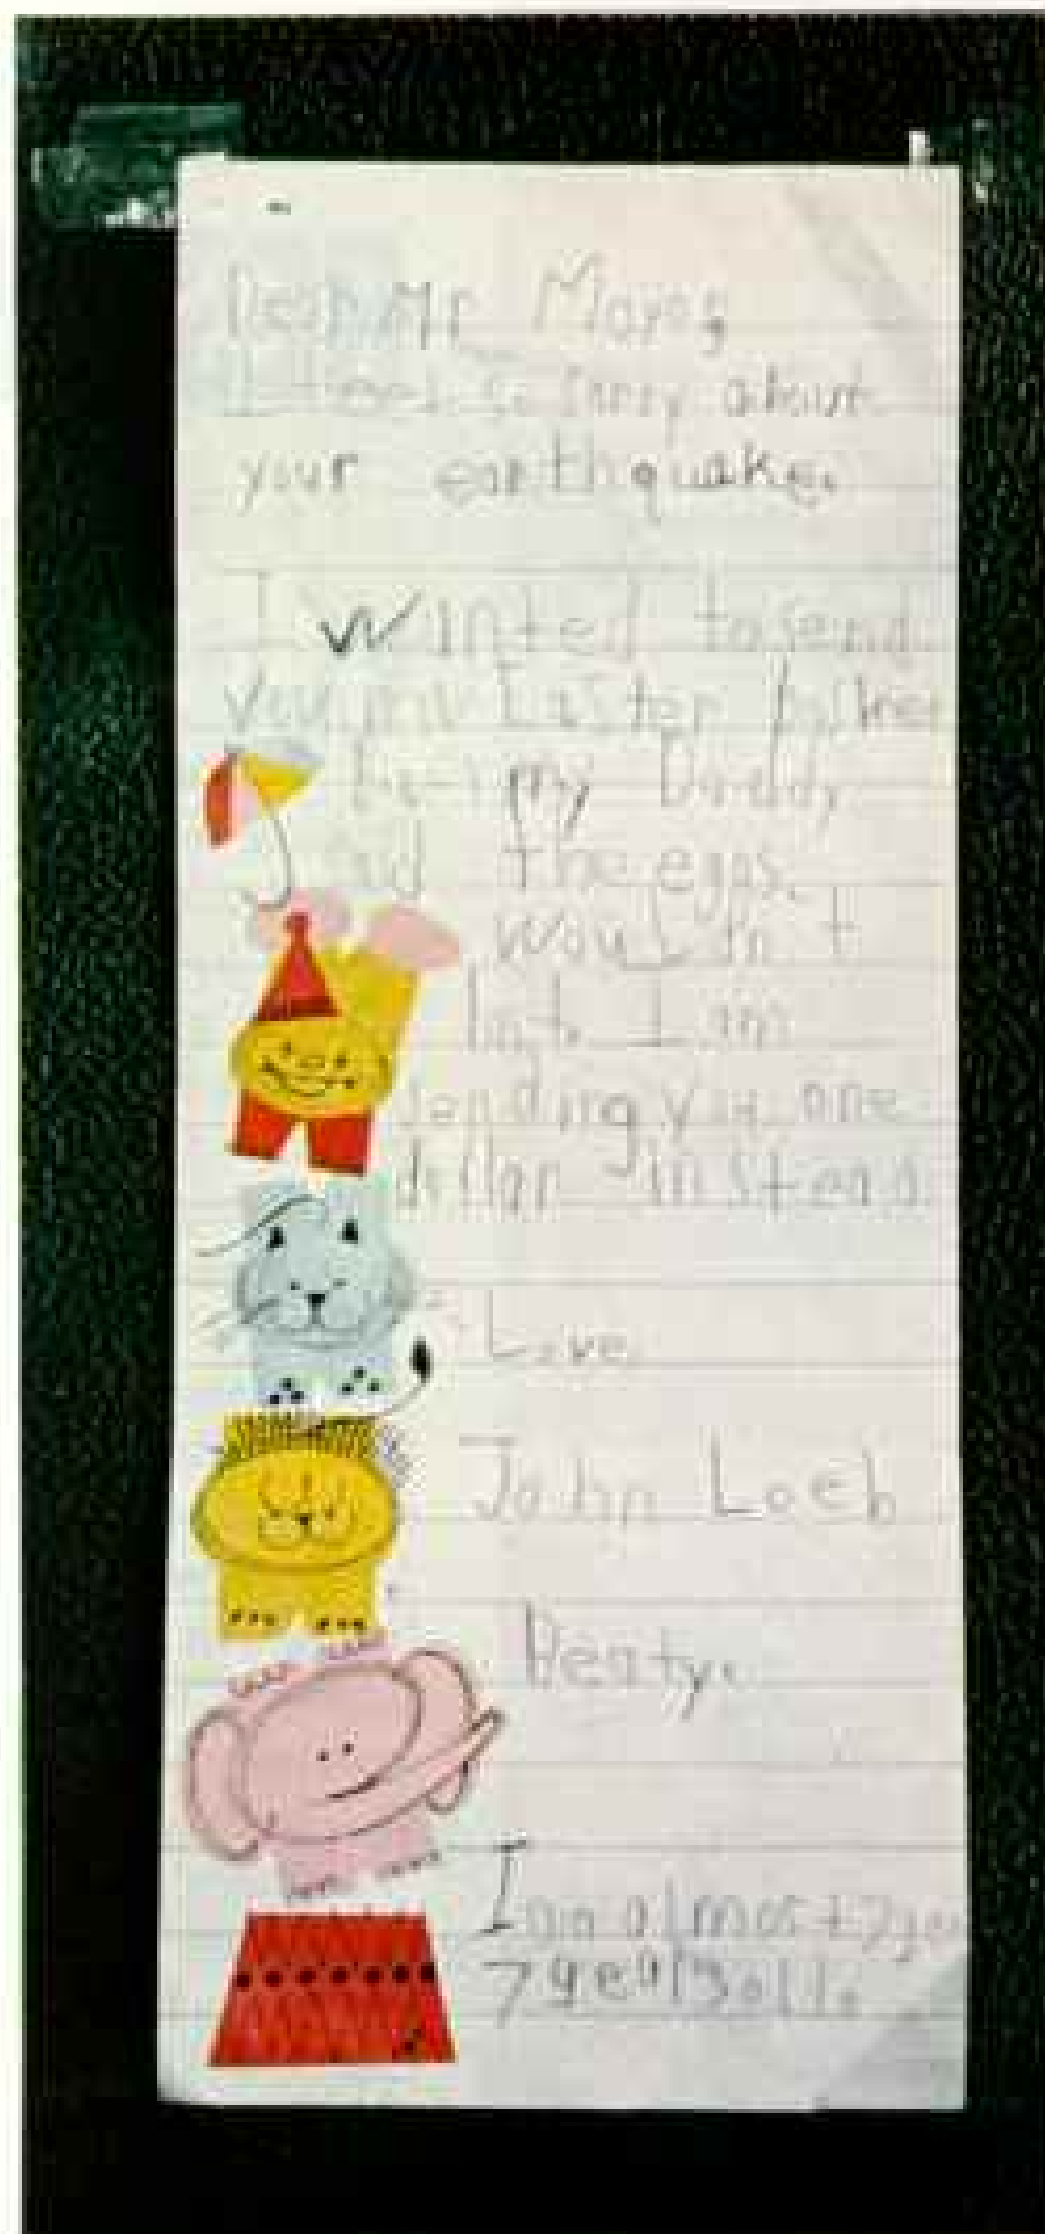 Dear Mr. Mayor,
I feel so sorry about
your earthquake.
I wanted to send
you my Easter basket
but my Daddy
said the eggs
would n't
last. I am
sending you one
dollar instead.
Love,
John Loeb
Beaty.
I am almost 7 ye
7 years old.